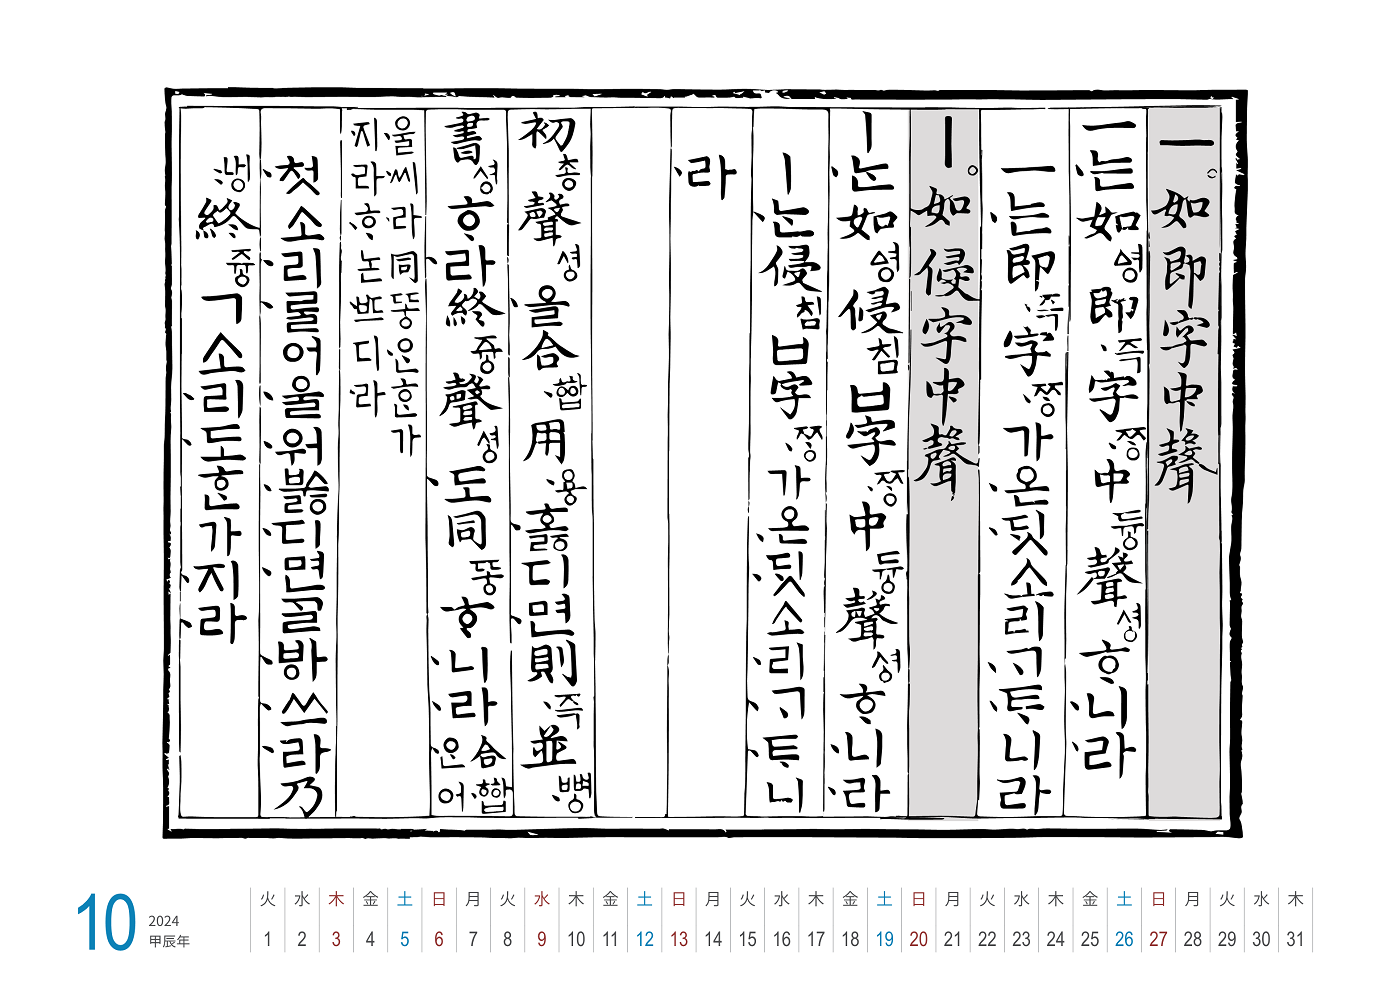 ㅡ。如即字中聲
ㅡ·는如ᅌᅧᆼ即·즉字·ᄍᆞᆼ中듀ᇰ聲셩ᄒᆞ·니·라
ㅡ·는即·즉字·ᄍᆞᆼ가·온·딧소리·ᄀᆞ·ᄐᆞ니라
ㅣ。如侵字中聲
ㅣ·ᄂᆞᆫ如ᅌᅧᆼ侵침ㅂ字·ᄍᆞᆼ中듀ᇰ聲셩ᄒᆞ·니·라
ㅣ·ᄂᆞᆫ侵침ㅂ字·ᄍᆞᆼ가·온·딧소·리·ᄀᆞ·ᄐᆞ니
·라
初총聲셩·을合·ᅘᅡᆸ用·용·ᄒᆞᇙ디·면則·즉並·뼝
書셩ᄒᆞ·라終즁聲셩·도同똥ᄒᆞ·니·라合·ᅘᅡᆸ·은어
울·씨라同똥·은ᄒᆞᆫ가
지·라·ᄒᆞ·논·ᄠᅳ디·라
·첫소·리·ᄅᆞᆯ어·울·워·ᄡᅮᇙ·디·면ᄀᆞᆯ·바·쓰·라乃
:냉終즁ㄱ소·리·도ᄒᆞᆫ가·지·라
10
2024
甲辰年
火 水 木 金 土 日 月 火 水 木 金 土 日 月 火 水 木 金 土 日 月 火 水 木 金 土 日 月 火 水 木
1 2 3 4 5 6 7 8 9 10 11 12 13 14 15 16 17 18 19 20 21 22 23 24 25 26 27 28 29 30 31